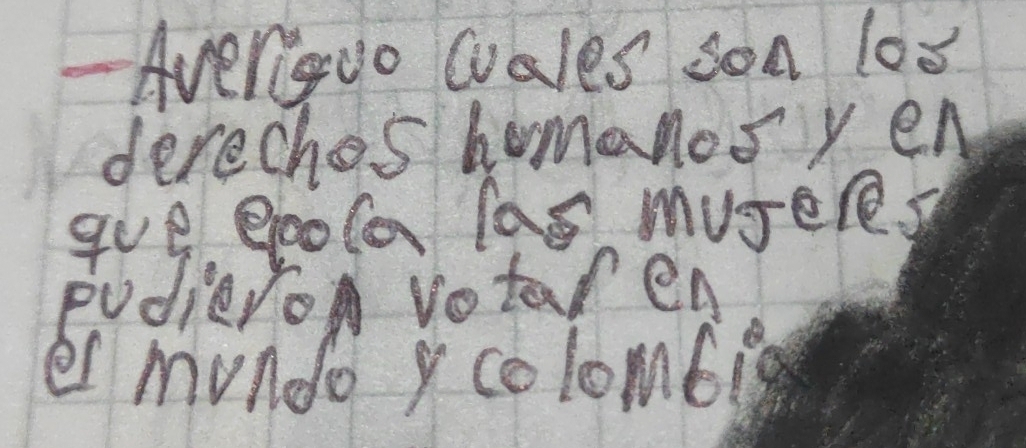 - Averiguo cuales son los
derechos humanos y en
que epoca las mujeres
pudieron votar en
el mundo y colombia